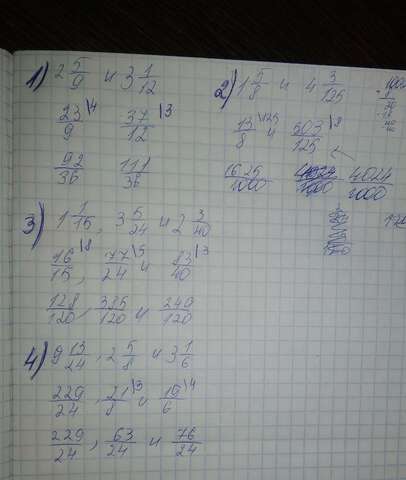 1) 2 5/9 и 3 1/12
23/9 \4 37/12 \3
92/36 111/36
2) 1 5/8 и 4 3/125
13/8 \125 и 503/125 \8
1625/1000 4024/1000
3) 1 1/15, 3 5/24 и 2 3/40
16/15 \8, 77/24 \5 и 83/40 \3
128/120, 385/120 и 249/120
4) 9 13/24, 2 5/8 и 3 1/6
229/24, 21/8 \3 и 19/6 \4
229/24, 63/24 и 76/24